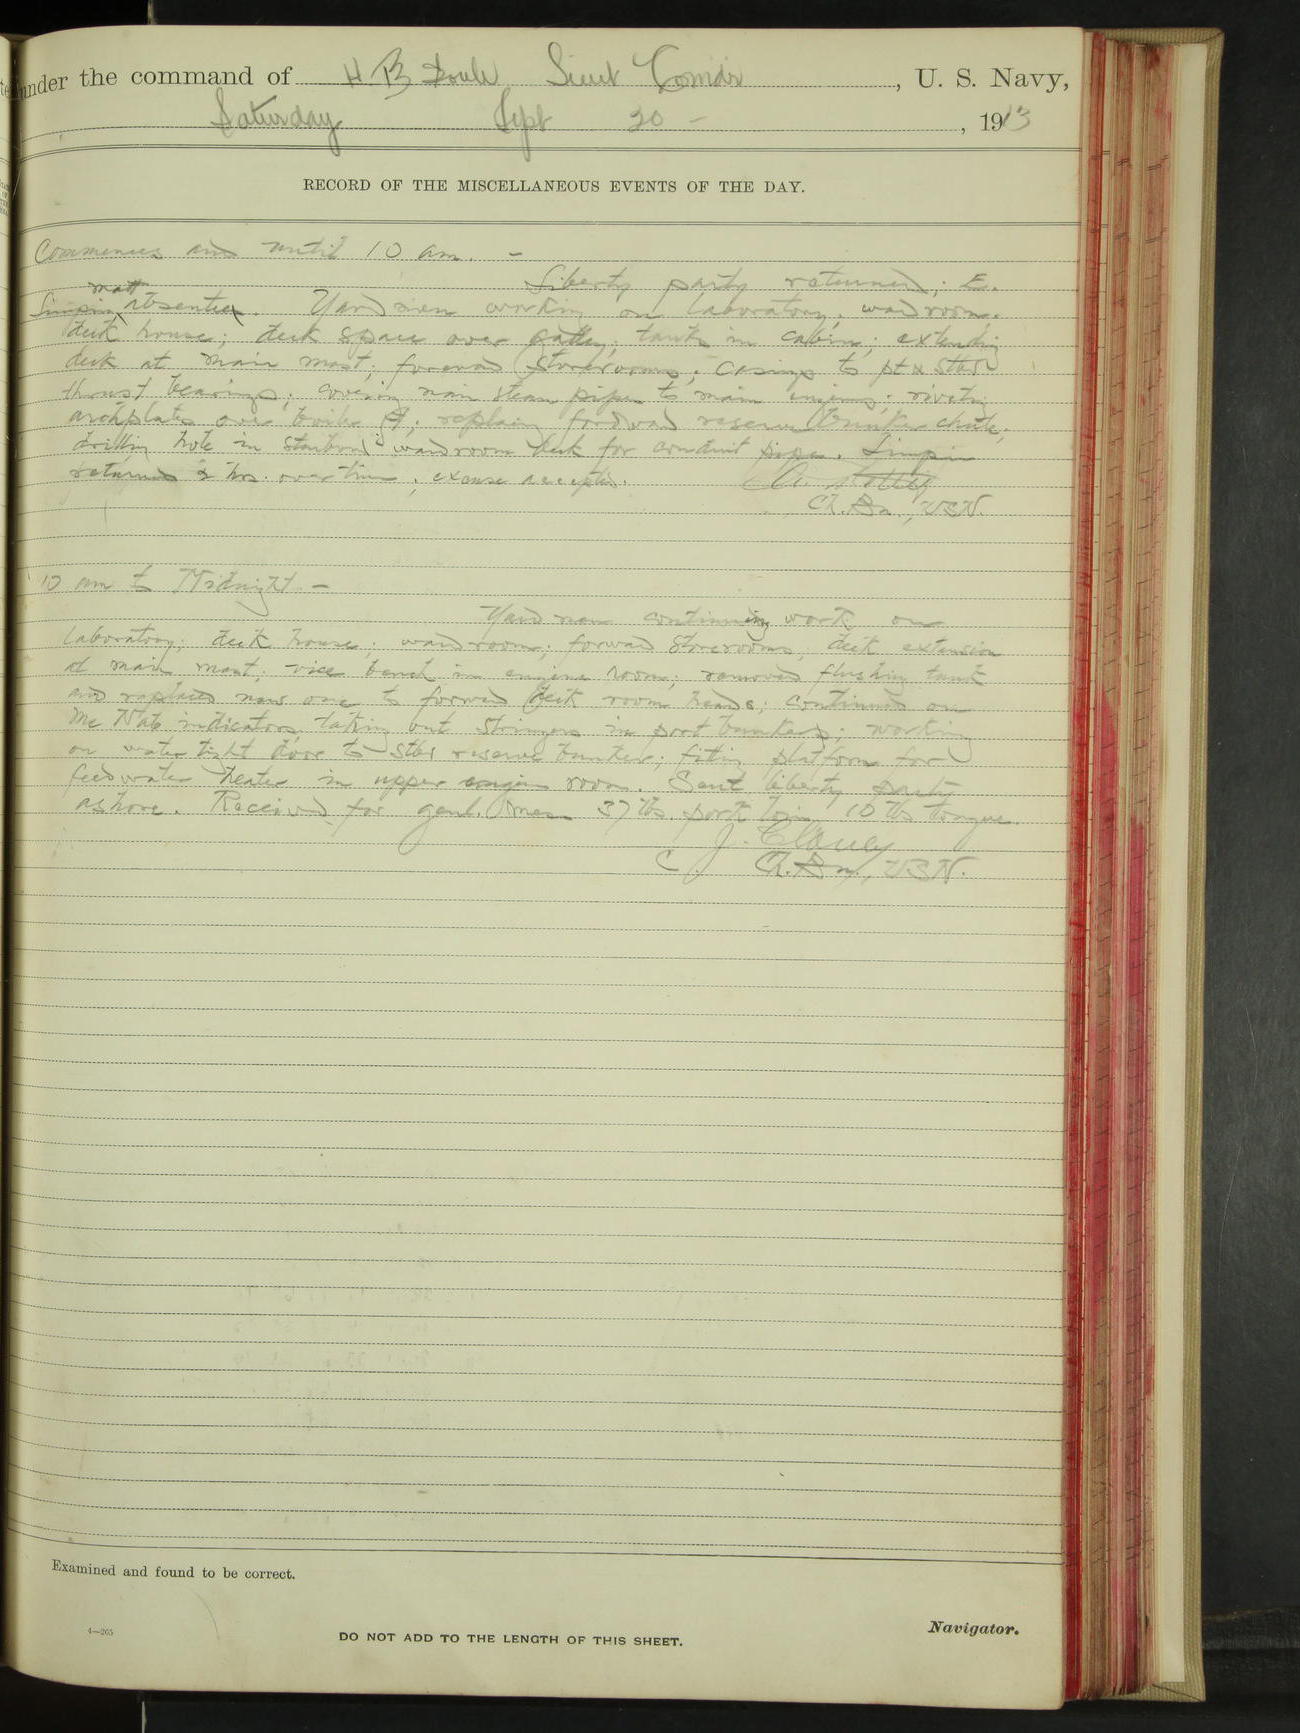 under the command of H B Soulé Lieut Comdr, U. S. Navy,
Saturday Sept 20 -, 1913
RECORD OF THE MISCELLANEOUS EVENTS OF THE DAY.
Commences and until 10 am. -
Liberty party returned; E.
Simpin, matt absentee. Yardmen working on laboratory; wardroom;
deck house; deck space over galley; tanks in cabin; extending
deck at main mast; forward storerooms; casings to pt & stbd
thrust bearings; covering main steam pipes to main engines; riveting
archplates over boiler; replacing forward reserve bunker chute;
drilling hole in starboard wardroom bulk for conduit pipe. Simpin
returned 2 hrs. overtime; excuse accepted.
Ch. Bn., USN.
10 am to Midnight -
Yard men continuing work on
laboratory; deck house; wardroom; forward storerooms; deck extension
at main mast; vice bench in engine room; removed flushing tank
and replaced new one to forward deck room heads; continued on
McNab indicators, taking out stringers in port bunkers; working
on water tight door to stbd reserve bunker; fitting platform for
feedwater heater in upper engine room. Sent liberty party
ashore. Received for genl. mess 37 lbs. pork loin, 10 lbs tongue.
Ch. Bn., USN.
Examined and found to be correct.
4—265
DO NOT ADD TO THE LENGTH OF THIS SHEET.
Navigator.